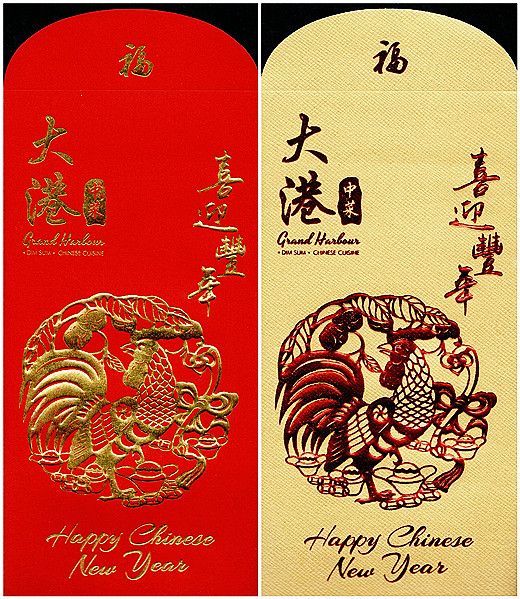 福
大港
中菜
Grand Harbour
• DIM SUM • CHINESE CUISINE
喜迎豐年
Happy Chinece
New Year
福
大港
中菜
Grand Harbour
• DIM SUM • CHINESE CUISINE
喜迎豐年
Happy Chinese
New Year